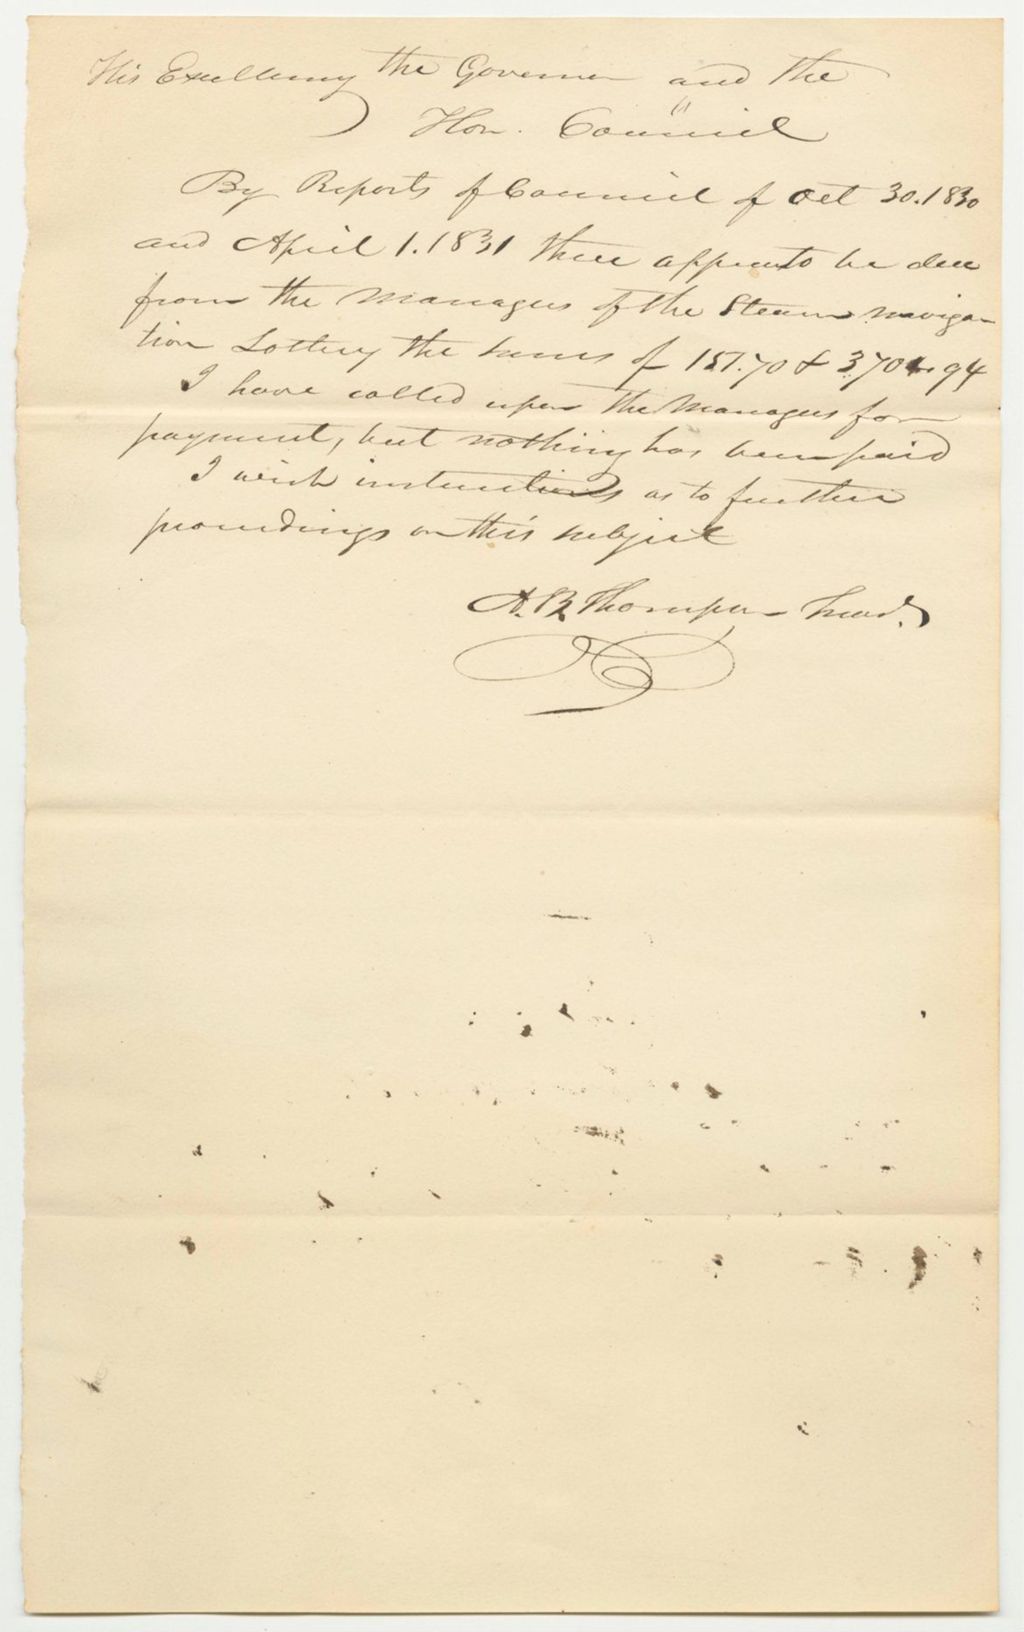 His Excellency the Governor and the
Hon. Council
By Reports of Council of Oct 30. 1830
and April 1. 1831 there appears to be due
from the Managers of the Steam naviga-
tion Lottery the sums of 157.70 & 370.94
I have called upon the Managers for
payment, but nothing has been paid
I wish instructions as to further
proceedings on this subject
A. B. Thompson Treas.